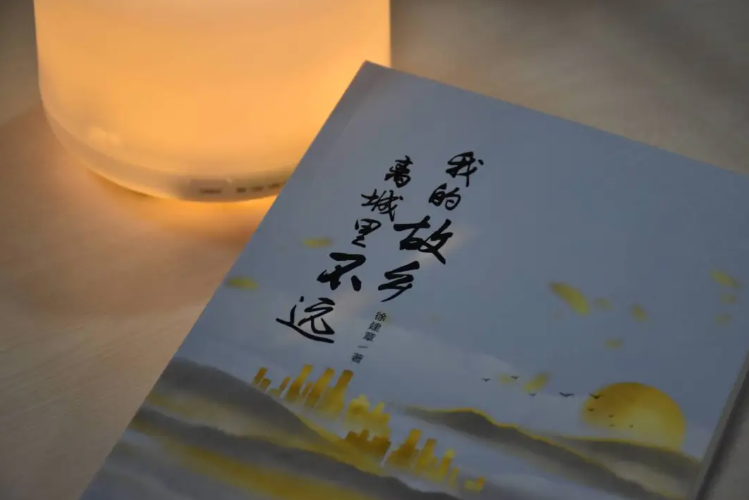 我的故乡
离城里不远
徐建章 | 著